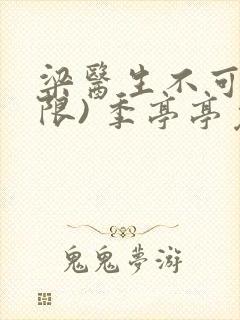 梁醫生不可
限) 季亭亭
鬼鬼夢游